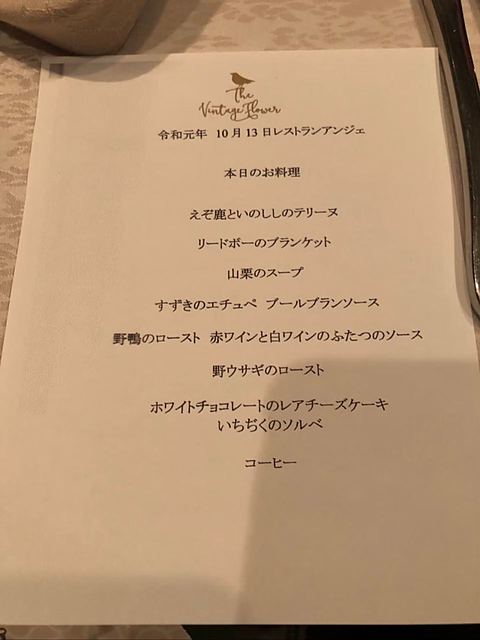 The
Vintage Flower
令和元年 10月13日レストランアンジェ
本日のお料理
えぞ鹿といのししのテリーヌ
リードボーのブランケット
山栗のスープ
すずきのエチュペ ブールブランソース
野鴨のロースト 赤ワインと白ワインのふたつのソース
野ウサギのロースト
ホワイトチョコレートのレアチーズケーキ
いちぢくのソルベ
コーヒー